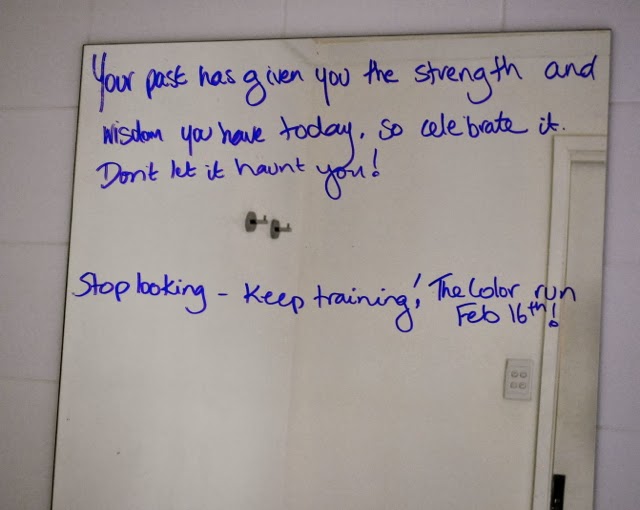 Your past has given you the strength and
wisdom you have today, so celebrate it.
Dont let it haunt you!
Stop looking - Keep training! The Color run
Feb 16th!